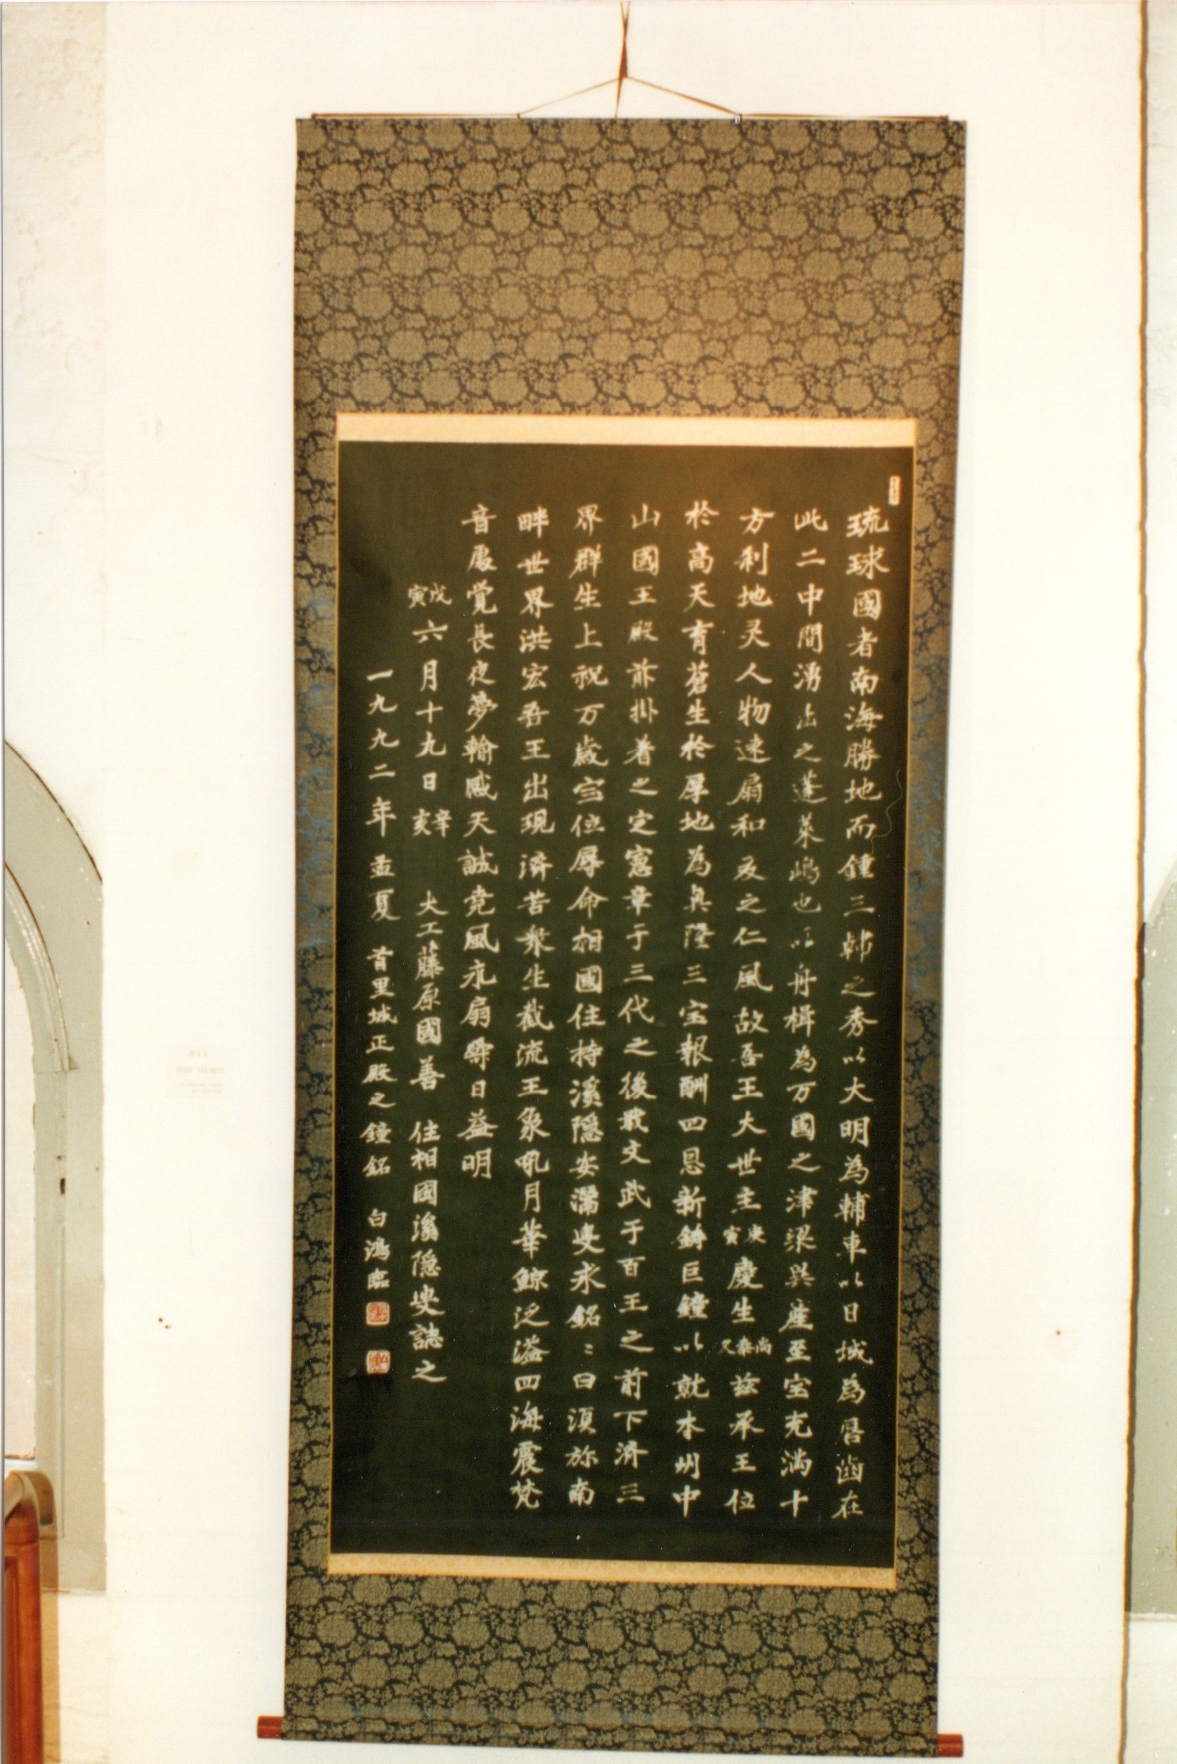 琉球國者南海勝地而鍾三韓之秀以大明為輔車以日域為唇齒在
此二中間湧出之蓬萊嶋也以舟楫為万國之津梁異產至宝充満十
方刹地灵人物遠扇和夏之仁風故吾王大世主庚寅慶生尚泰久茲承王位
於高天育蒼生於厚地為興隆三宝報酬四恩新鋳巨鐘以就本州中
山國王殿前掛着之定憲章于三代之後戢文武于百王之前下済三
界群生上祝万歳宝位辱命相國住持溪隠安潛叟求銘々曰須弥南
畔世界洪宏吾王出現済苦衆生截流玉象吼月華鯨泛溢四海震梵
音覺長夜夢輸感天誠尭風永扇舜日益明
戊寅六月十九日辛亥 大工藤原國善 住相國溪隠叟誌之
一九九二年 孟夏 首里城正殿之鐘銘 白鴻臨